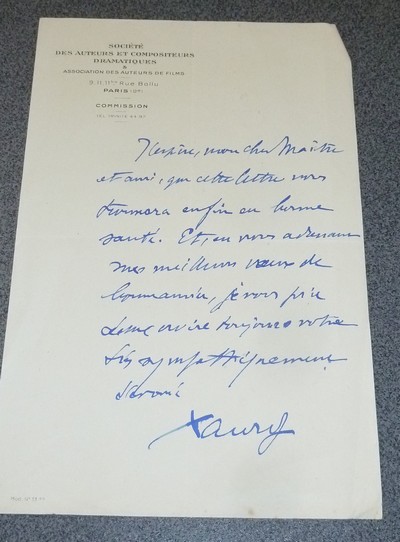 SOCIÉTÉ
DES AUTEURS ET COMPOSITEURS
DRAMATIQUES
&
ASSOCIATION DES AUTEURS DE FILMS
9 & 11 bis Rue Ballu
PARIS (9e)
COMMISSION
J'espère, mon cher Maître
et ami, que cette lettre vous
trouvera enfin en bonne
santé. Et, en vous adressant
mes meilleurs vœux de
je vous prie
de me croire toujours votre
très sympathiquement
dévoué